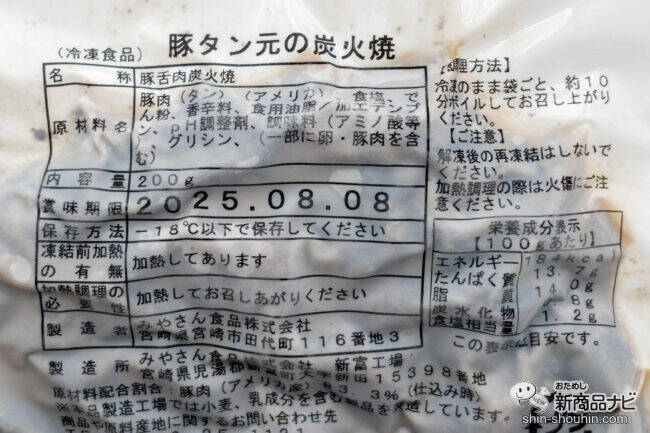 (冷凍食品) 豚タン元の炭火焼
名 称 豚舌肉炭火焼
原材料名 豚肉(タン)(アメリカ)、食塩、で
ん粉、香辛料、食用油脂/加工デンプ
ン、pH調整剤、調味料(アミノ酸等
)、グリシン、(一部に卵・豚肉を含
む)
内容量 200g
賞味期限 2025.08.08
保存方法 -18℃以下で保存してください
凍結前加熱
の有無 加熱してあります
加熱調理の
必要性 加熱してお召しあがりください
製造者 みやさん食品株式会社
宮崎県宮崎市田代町116番地3
製造所 みやさん食品株式会社 新富工場
宮崎県児湯郡新富町大字新田15398番地
原材料配合割合:豚肉(アメリカ産)83.3%(仕込み時)
※本品製造工場では小麦、乳成分を含む製品を製造しています。
商品や原料産地に関するお問い合わせ先
【調理方法】
冷凍のまま袋ごと、約10
分ボイルしてお召し上がり
ください。
【ご注意】
解凍後の再凍結はしないで
ください。
加熱調理の際は火傷にご注
意ください。
栄養成分表示
【100gあたり】
エネルギー 184kcal
たんぱく質 13.7g
脂質 14.0g
炭水化物 .8g
食塩相当量 1.2g
この表示は目安です。
おためし
新商品ナビ
shin-shouhin.com